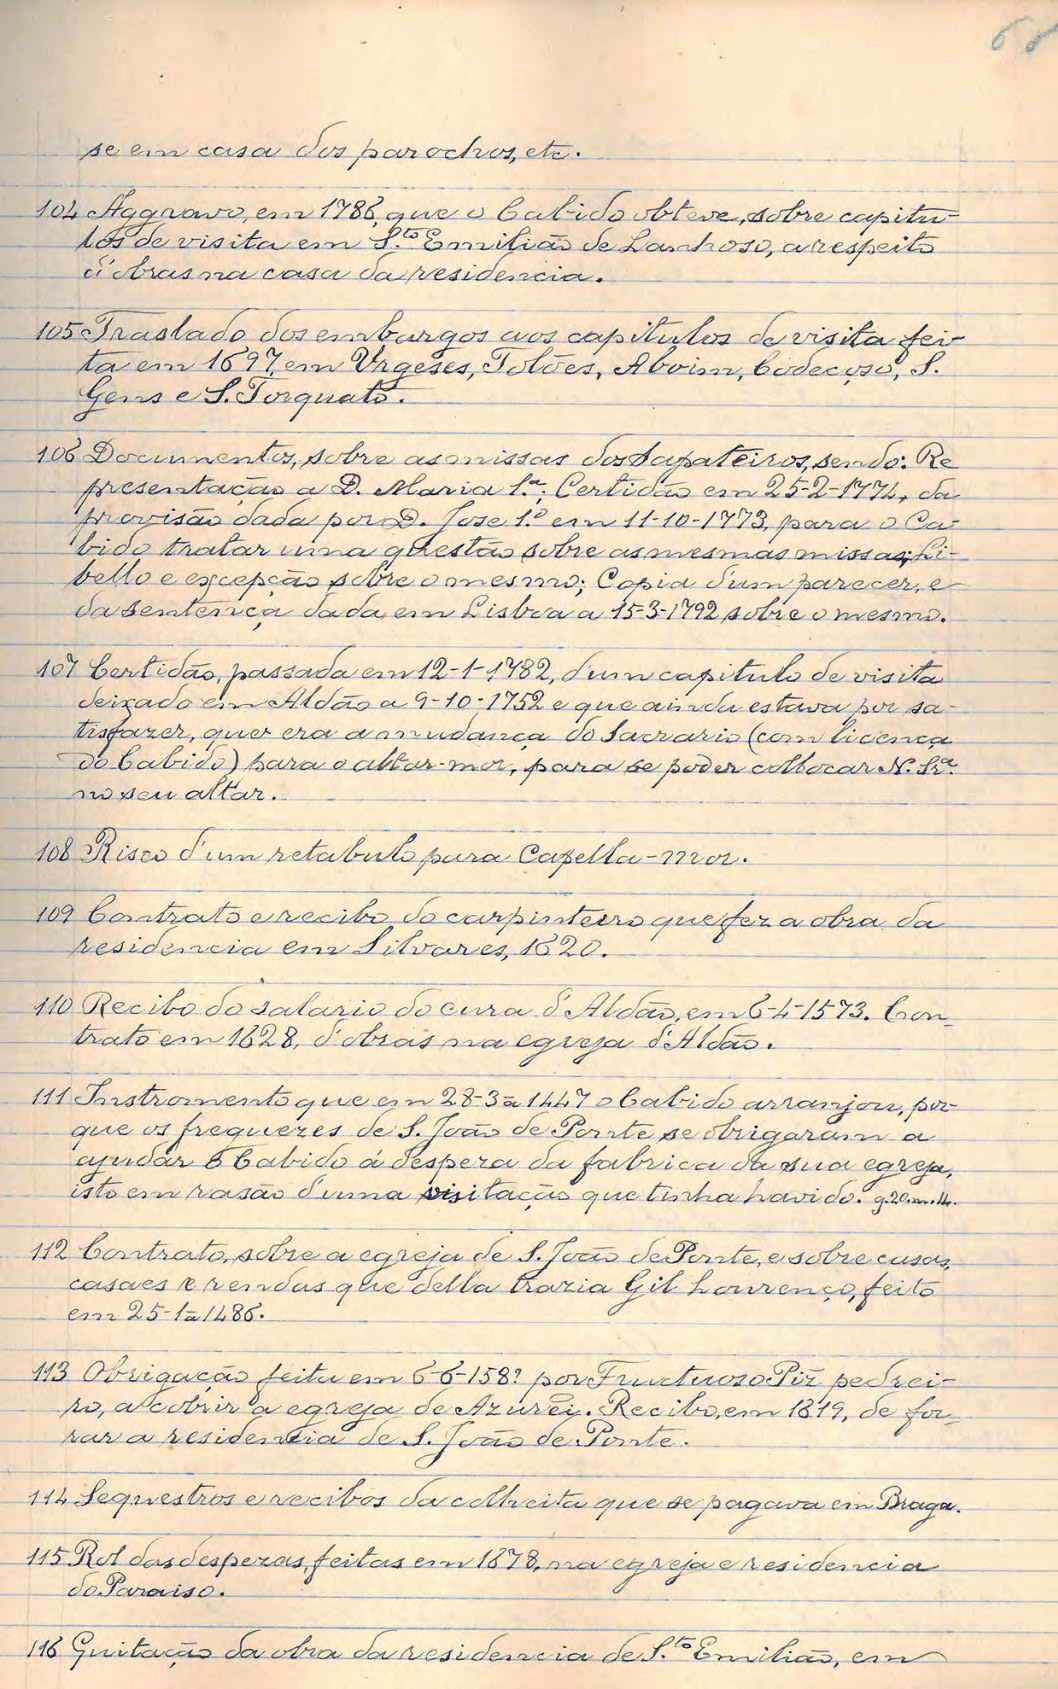 68
se em casa dos parochos, etc.
104 Aggravo, em 1786, que o Cabido obteve, sobre capitu-
los de visita em S.to Emilião de Lanhoso, a respeito
d'obras na casa da residencia.
105 Traslado dos embargos aos capitulos de visita fei-
ta em 1697, em Urgeses, Tolões, Aboim, Codeçoso, S.
Gens e S. Torquato.
106 Documentos, sobre as missas dos Sapateiros, sendo: Re
presentação a D. Maria 1.ª; Certidão em 25-2-1774, da
provisão dada por D. Jose 1.º em 11-10-1773, para o Ca-
bido tratar uma questão sobre as mesmas missas; Li-
bello e excepção sobre o mesmo; Copia d'um parecer, e
da sentença dada em Lisboa a 15-3-1792 sobre o mesmo.
107 Certidão, passada em 12-1-1782, d'um capitulo de visita
deixado em Aldão a 9-10-1752 e que ainda estava por sa-
tisfazer, quer era a mudança do Sacrario (com licença
do Cabido) para o altar-mor, para se poder collocar N. Sr.ª
no seu altar.
108 Risco d'um retabulo para Capella-mor.
109 Contrato e recibo do carpinteiro que fez a obra da
residencia em Silvares, 1620.
110 Recibo do salario do cura d'Aldão, em 6-4-1573. Con-
trato em 1628, d'obras na egreja d'Aldão.
111 Instromento que em 28-3-a 1447 o Cabido arranjou, por-
que os freguezes de S. João de Ponte se obrigaram a
ajudar o Cabido á despeza da fabrica da sua egreja,
isto em rasão d'uma visitação que tinha havido. g. 20. m. 4.
112 Contrato, sobre a egreja de S. João de Ponte, e sobre casas,
casaes e rendas que della trazia Gil Lourenço, feito
em 25-1-a 1486.
113 Obrigação feita em 6-6-158? por Fructuoso Piz pedrei-
ro, a cobrir a egreja de Azurei. Recibo, em 1819, de for-
rar a residencia de S. João de Ponte.
114 Sequestros e recibos da colheita que se pagava em Braga.
115 Rol das despezas, feitas em 1678, na egreja e residencia
do Paraiso.
116 Quitação da obra da residencia de S.to Emilião, em